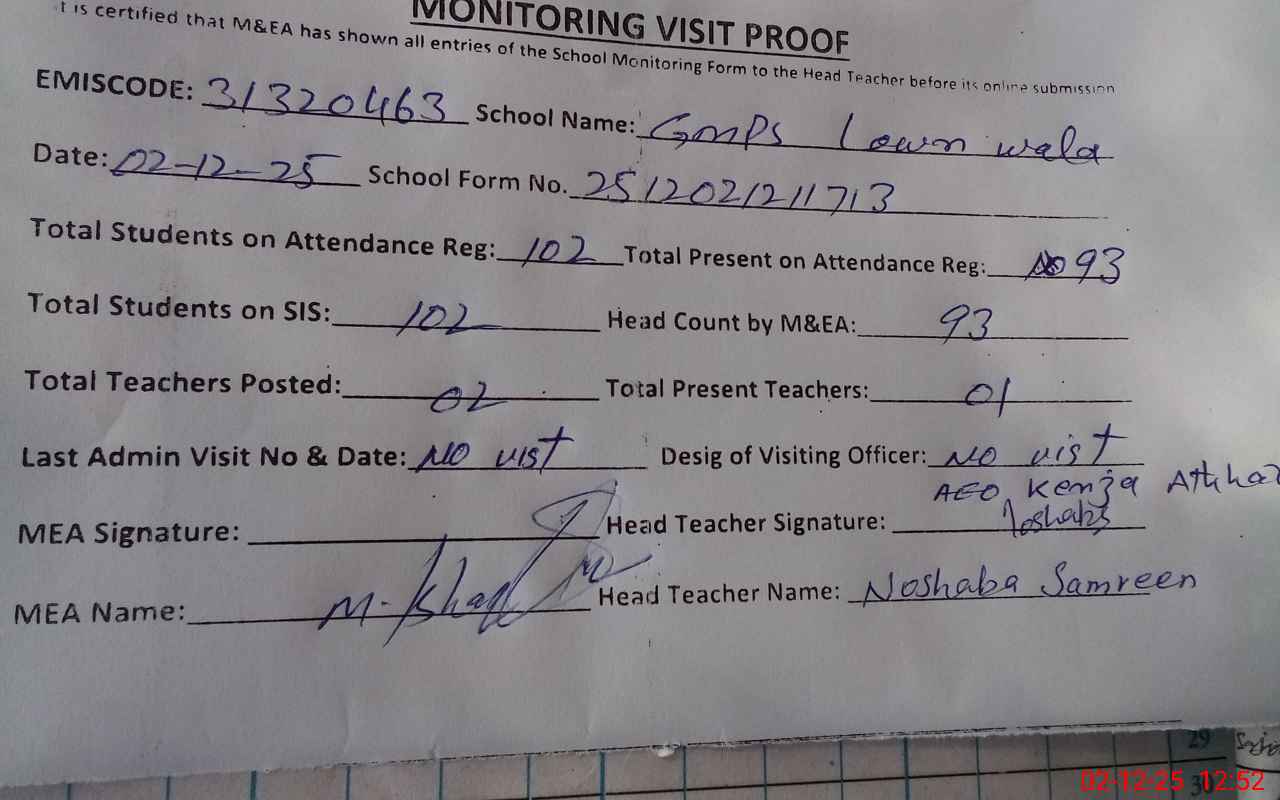 MONITORING VISIT PROOF
t is certified that M&EA has shown all entries of the School Monitoring Form to the Head Teacher before its online submission
EMISCODE: 31320463 School Name: GMPS Lown wala
Date: 02-12-25 School Form No. 251202121 1713
Total Students on Attendance Reg: 102 Total Present on Attendance Reg: 93
Total Students on SIS: 102 Head Count by M&EA: 93
Total Teachers Posted: 02 Total Present Teachers: 01
Last Admin Visit No & Date: NO vist Desig of Visiting Officer: NO vist
AEO Kenza
MEA Signature: Head Teacher Signature: Noshaba
MEA Name: Head Teacher Name: Noshaba Samreen
29
30
02-12-25 12:52